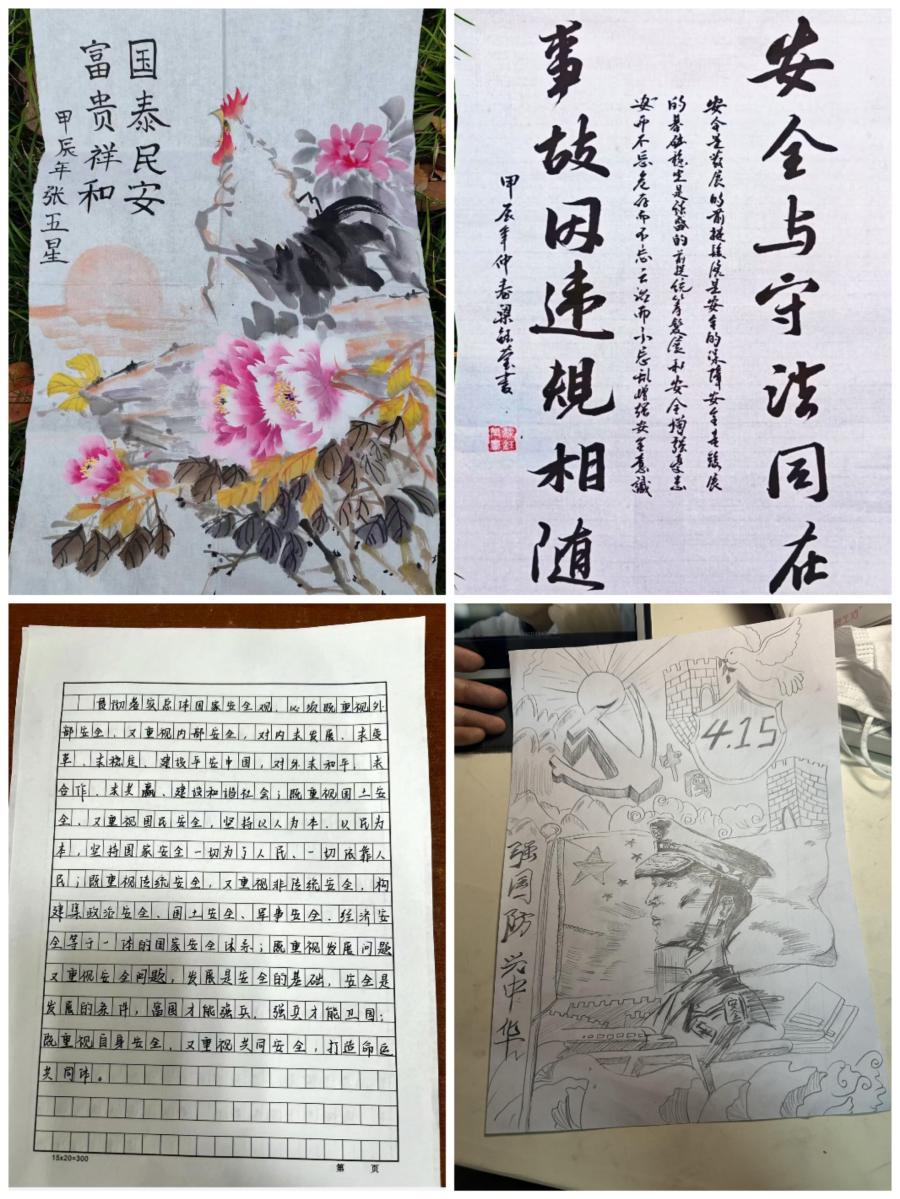 国泰民安
富贵祥和
甲辰年张五星
安全与守法同在
安全是发展的前提发展是安全的保障安全是发展
的基础稳定是强盛的前提统筹发展和安全增强忧患意
安而不忘危存而不忘亡治而不忘乱增强安全意识
事故因违规相随
甲辰年仲春梁钰莹书
贯彻落实总体国家安全观，必须既重视外
部安全，又重视内部安全，对内求发展、求变
革、求稳定、建设平安中国，对外求和平、求
合作、求共赢、建设和谐社会；既重视国土安
全、又重视国民安全，坚持以人为本、以民为
本，坚持国家安全一切为了人民、一切依靠人
民；既重视传统安全，又重视非传统安全，构
建集政治安全、国土安全、军事安全、经济安
全等于一体的国家安全体系；既重视发展问题
又重视安全问题，发展是安全的基础，安全是
发展的条件，富国才能强兵，强兵才能卫国；
既重视自身安全，又重视共同安全，打造命运
共同体。
15x20=300
第 页
4.15
中国
强国防 兴中华